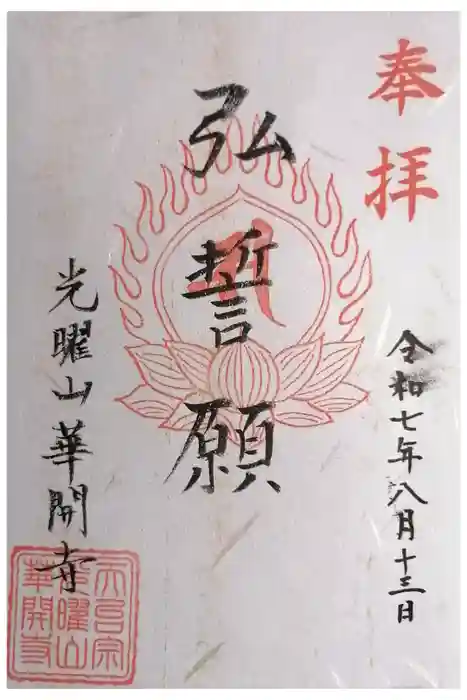 奉拝
令和七年八月十三日
弘誓願
光曜山華開寺
光曜山
華開寺